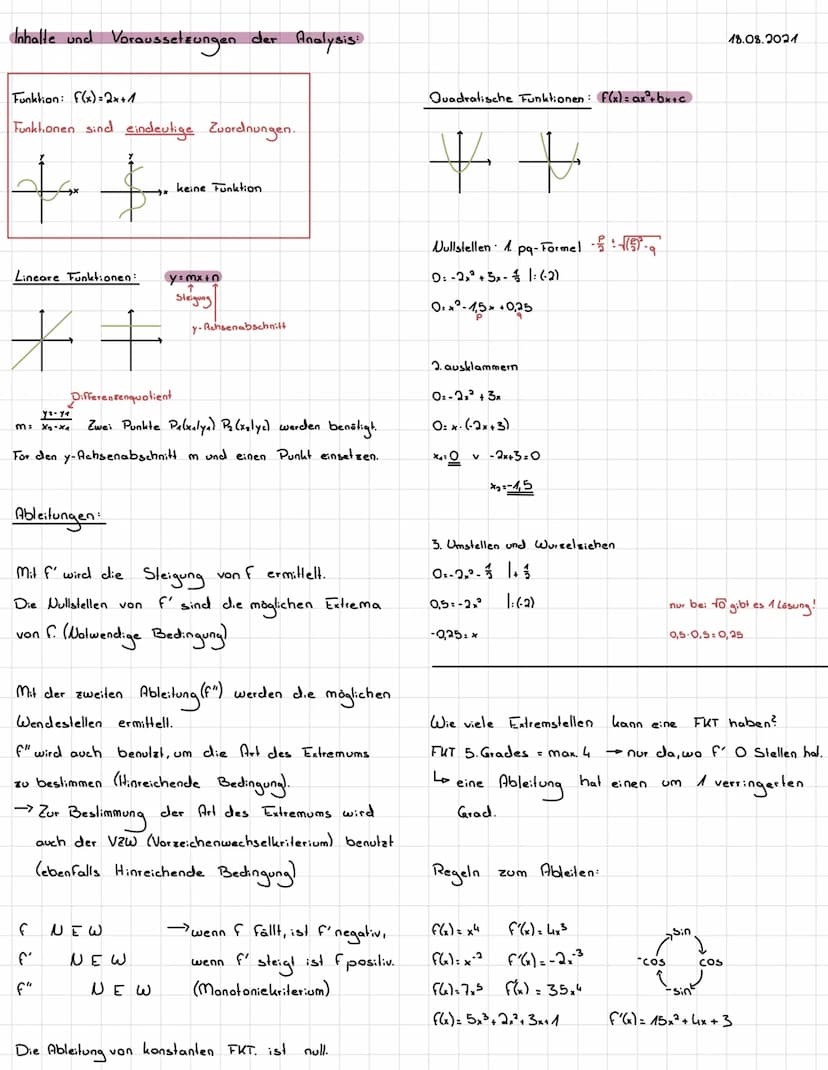 Inhalte und Voraussetzungen der Analysis:
18.08.2021
Funktion: f(x)=2x+1
Funktionen sind eindeutige Zuordnungen.
y
x
y
x
keine Funktion
Lineare Funktionen:
y=mx+n
Steigung
y-Achsenabschnitt
Differenzenquotient
m= (y₂-y₁)/(x₂-x₁) Zwei Punkte P₁(x₁|y₁) P₂(x₂|y₂) werden benötigt.
Für den y-Achsenabschnitt m und einen Punkt einsetzen.
Ableitungen:
Mit f' wird die Steigung von f ermittelt.
Die Nullstellen von f' sind die möglichen Extrema
von f. (Notwendige Bedingung)
Mit der zweiten Ableitung (f") werden die möglichen
Wendestellen ermittelt.
f" wird auch benutzt, um die Art des Extremums
zu bestimmen (Hinreichende Bedingung).
→ Zur Bestimmung der Art des Extremums wird
auch der VZW (Vorzeichenwechselkriterium) benutzt
(ebenfalls Hinreichende Bedingung)
f N E W
f' N E W
f" N E W
→ wenn f fällt, ist f' negativ,
wenn f' steigt ist f positiv.
(Monotoniekriterium)
Die Ableitung von konstanten FKT. ist null.
Quadratische Funktionen: f(x)=ax²+bx+c
Nullstellen: 1. pq-Formel -p/2 ± √((p/2)²-q)
0=-2x²+3x-½ |:(-2)
0=x²-1,5x+0,25
p q
2. ausklammern
0=-2x²+3x
0=x·(-2x+3)
x₁=0 v -2x+3=0
x₂=-1,5
3. Umstellen und Wurzelziehen
0=-2x²-½ |+½
0,5=-2x² |:(-2)
-0,25=x
nur bei √0 gibt es 1 Lösung!
0,5·0,5=0,25
Wie viele Extremstellen kann eine FKT haben?
FKT 5. Grades = max. 4 → nur da, wo f' 0 Stellen hat.
↳ eine Ableitung hat einen um 1 verringerten
Grad.
Regeln zum Ableiten:
f(x)=x⁴ f'(x)=4x³
f(x)=x⁻² f'(x)=-2x⁻³
f(x)=7x⁵ f'(x)=35x⁴
f(x)=5x³+2x²+3x+1 f'(x)=15x²+4x+3
sin
-cos cos
-sin